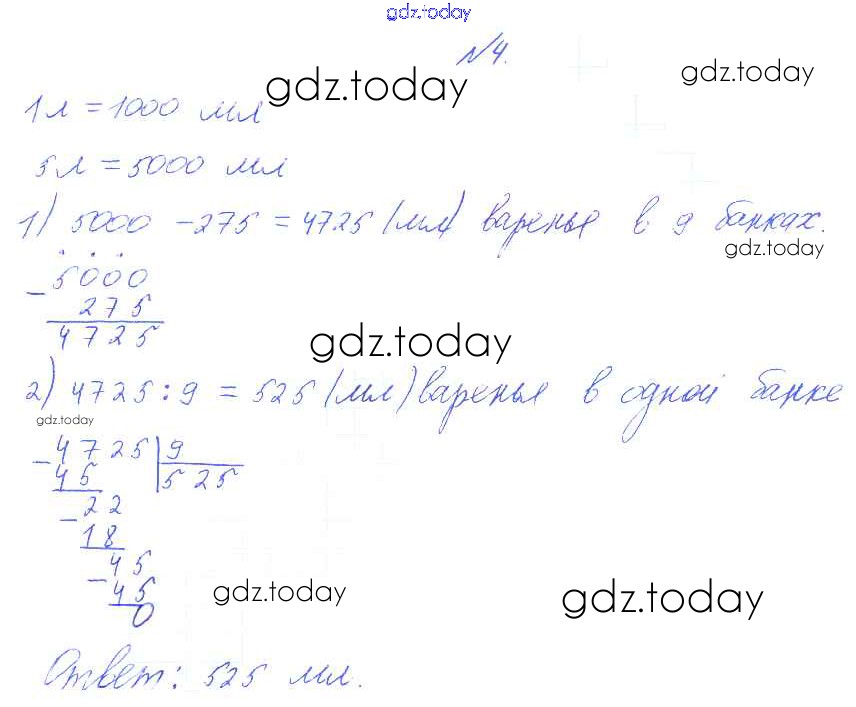 gdz.today
№4.
gdz.today gdz.today
1л = 1000 мл
5л = 5000 мл
1) 5000 - 275 = 4725 (мл) варенья в 9 банках.
gdz.today
- 5000
275
4725
gdz.today
2) 4725 : 9 = 525 (мл) варенья в одной банке
gdz.today
- 4725 | 9
45 525
- 22
18
45
- 45
0
gdz.today gdz.today
Ответ: 525 мл.